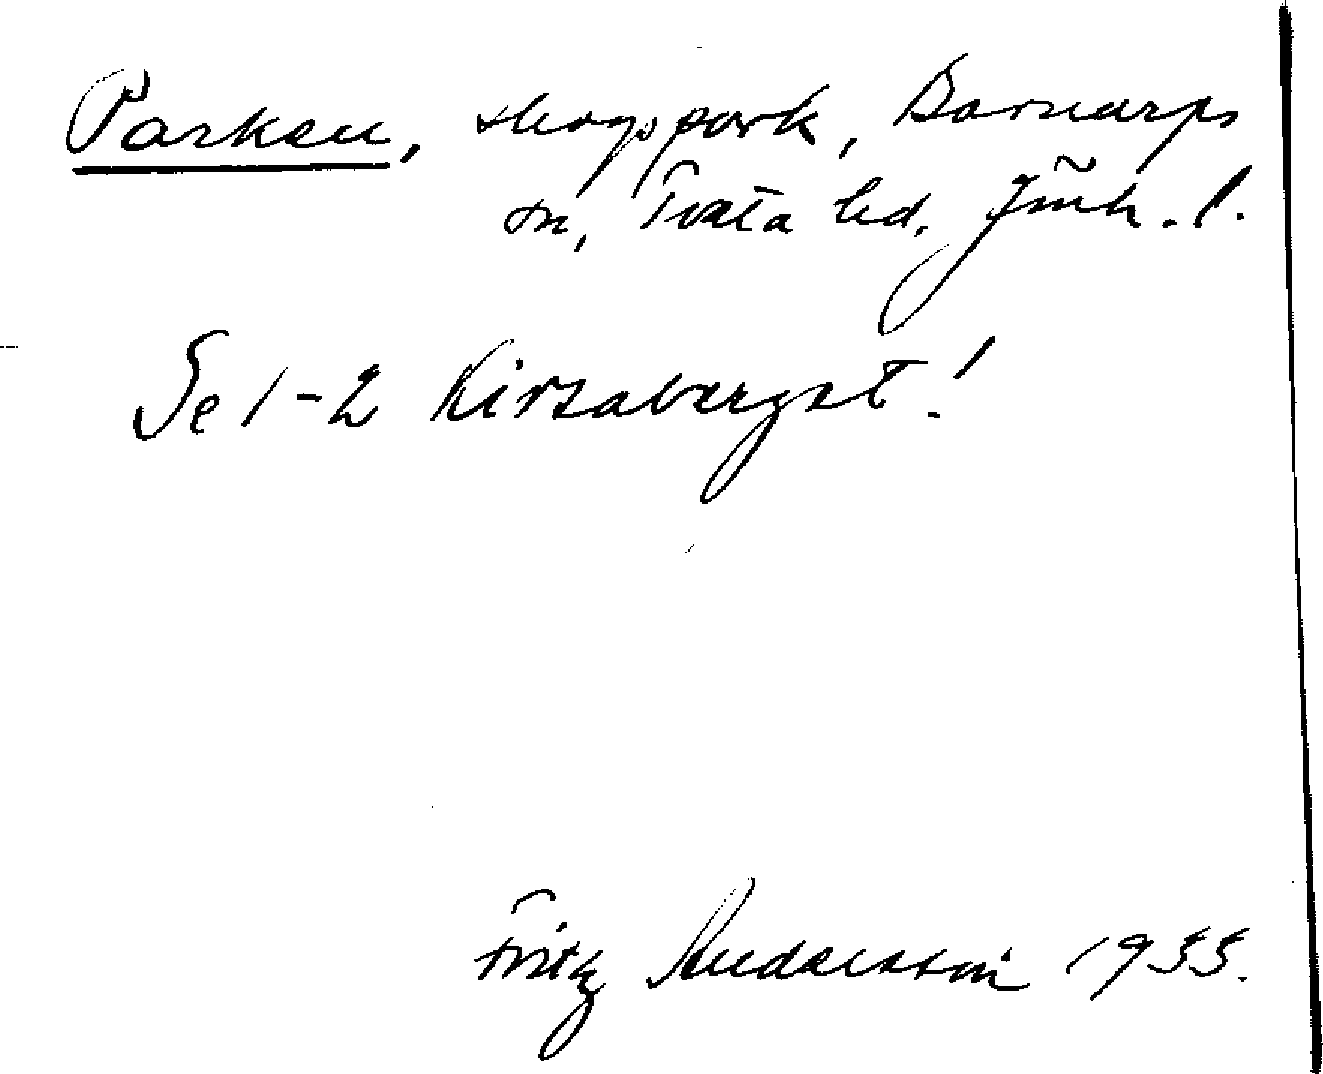 Parken, skogspark, Barnarps
sn, Tveta hd, Jönk. l.
Se 1-2 Kirsaberget!
Fritz Andersson 1955.